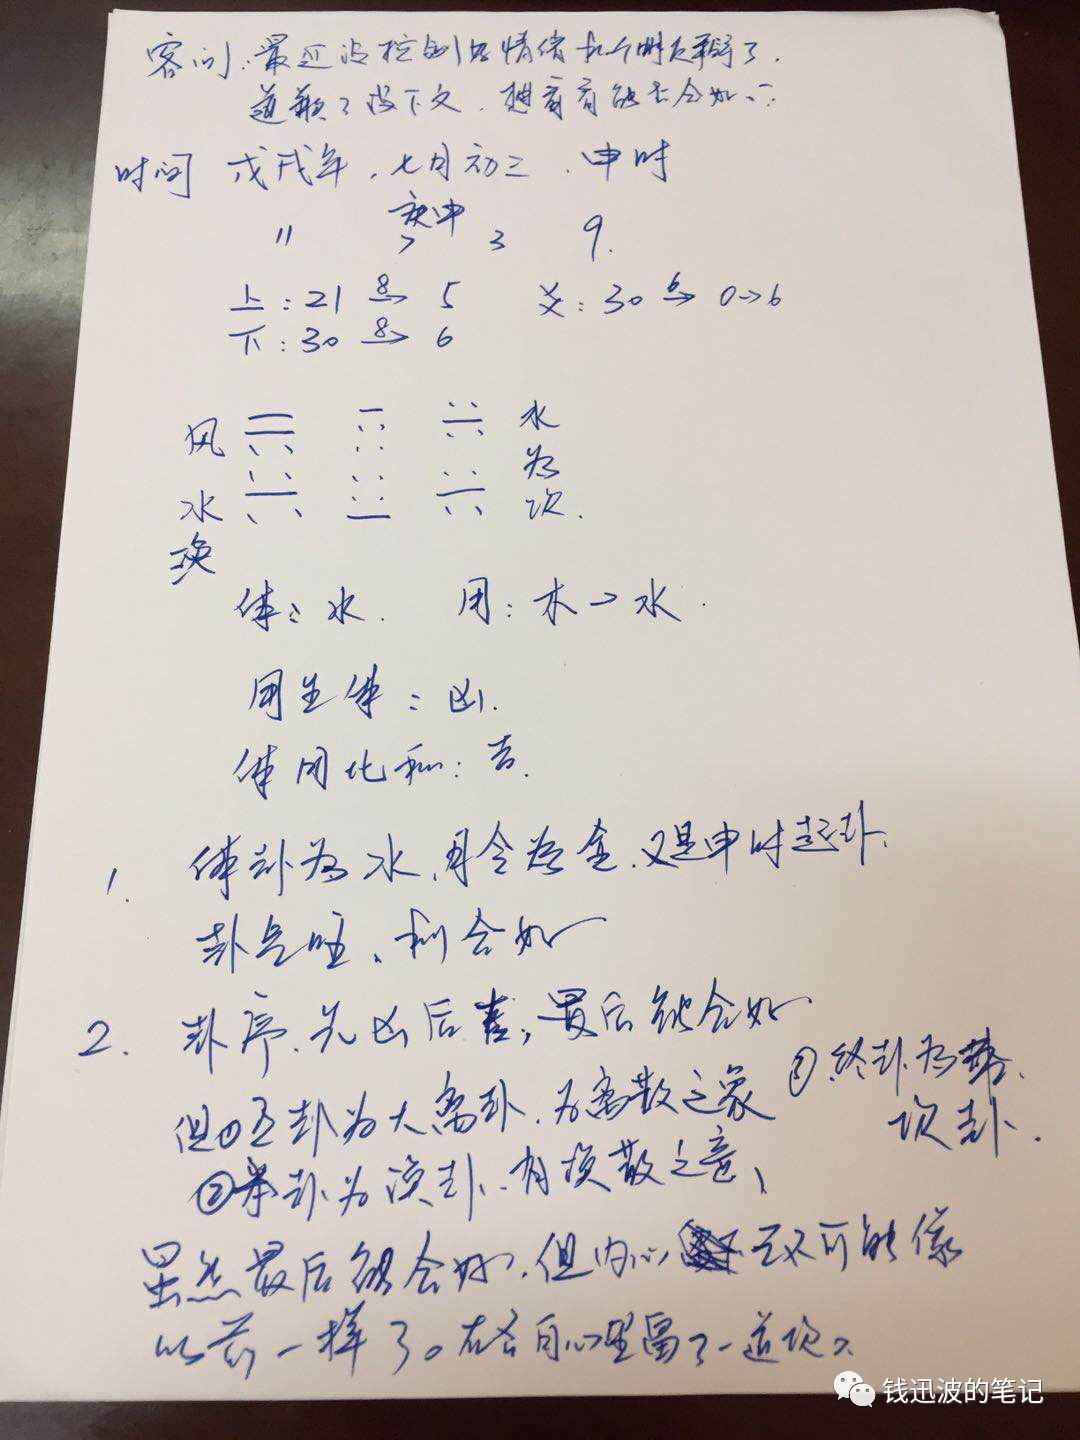 客问:最近没控制好情绪和个朋友聊了.
道歉了没下文.想看看能否合好.
时间 戊戌年.七月初三.申时
庚申
11 7 3 9.
上:21 8→ 5 爻:30 6→ 0→6
下:30 8→ 6
风 水
为
水 坎.
涣
体:水. 用:木→水.
用生体:凶.
体用比和:吉.
1. 体卦为水,月令为金,又是申时起卦.
卦气旺、利合好
2. 卦序.先凶后吉,最后能合好
但①互卦为大离卦.为离散之象 ③.终卦为
坎卦.
②本卦为涣卦.有涣散之意,
虽然最后能合好.但内心 不可能像
以前一样了。在各自心里留了一道坎.
钱迅波的笔记